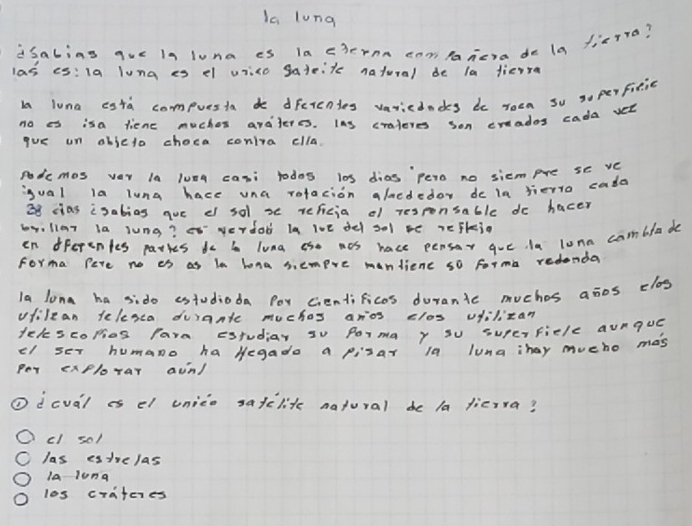 la luna
¿Sabias que la luna es la eterna compañera de la tierra?
las es: la luna es el unico sateite natural de la tierra
la luna está compuesta de dferentes variedades de roca su superficie
no es isa tiene muchos aráteres. las crateres son creados cada vez
que un objeto choca contra ella.
podemos ver la luna casi todos los dias pero no siempre se ve
igual la luna hace una rotación alrededor de la tierra cada
28 dias ¿sabias que el sol se refleja el responsable de hacer
brillar la luna? es verdad la luz del sol se refleja
en dferentes partes de la luna eso nos hace pensar que la luna cambia de
forma Pero no es as la luna siempre mantiene su forma redonda
la luna ha sido estudioda por cientificos durante muchos años elos
utilzan telesco durante muchos años elos utilizan
telescopios Para estudiar su Porma y su superfiele aunque
el ser humano ha llegado a pisar la luna ¡hay mucho más
por explorar aún!
① ¿cuál es el unico satélite natural de la tierra?
○ el sol
○ las estrelas
○ la luna
○ los cráteres